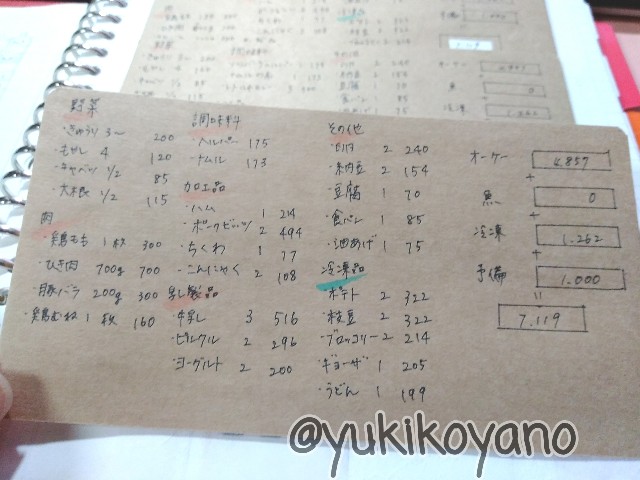 野菜
・きゅうり 3〜 200
・もやし 4 120
・キャベツ 1/2 85
・大根 1/2 115
肉
・鶏もも 1枚 300
・ひき肉 700g 700
・豚バラ 200g 300
・鶏むね 1枚 160
調味料
・ヘルパー 175
・ナムル 173
加工品
・ハム 1 214
・ポークビッツ 2 494
・ちくわ 1 77
・こんにゃく 2 108
乳製品
・牛乳 3 516
・ピルクル 2 296
・ヨーグルト 2 200
その他
・卵 2 240
・納豆 2 154
・豆腐 1 70
・食パン 1 85
・油あげ 1 75
冷凍品
・ポテト 2 322
・枝豆 2 322
・ブロッコリー 2 214
・ギョーザ 1 205
・うどん 1 199
オーケー 4,857
+
魚 0
+
冷凍 1.262
+
予備 1.000
=
7.119
@yukikoyano